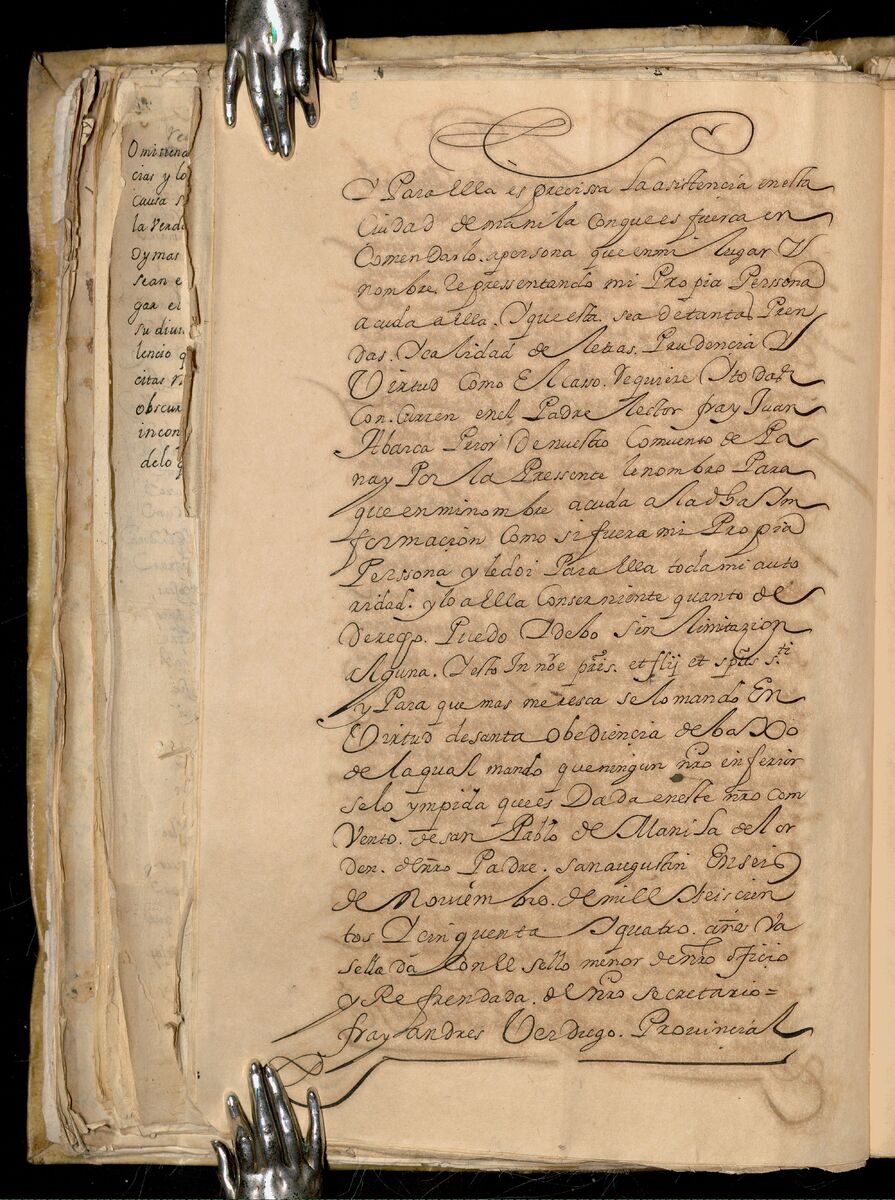 Omitiena
cias y lo
Causa s
la Verda
Dy mas
sean e
gar el
su diun
lencio q
citas
obscur
incon
delo
Y Para ella es precissa La asistencia en esta
Ciudad de manila Con que es fuerca en
Comendarlo. apersona que en mi lugar Y
nombre. Repressentando mi Propia Persona
acuda a ella. Y que esta sea de tantas Pren
das. Y calidad de letras. Prudencia Y
Virtud Como El casso. Requiere Y todas
Con. Curren en el Padre lector fray Juan
Abarca Prior De nuestro Comuento de Pa
nay Por la Pressente le nombro Para
que en mi nombre acuda a la dha In
formacion Como si fuera mi Propia
Perssona y le doi Para ella toda mi auto
ridad. y lo a ella Conserniente quanto de
Derecho. Puedo Y debo sin limitazion
alguna. Y esto In nõe pris. et flij et spũs s.ti
y Para que mas meresca se lo mando En
Virtud de santa obediencia debaxo
de la qual mando que ningun nro inferior
se lo ympida que es Dada en este nro com
Vento. de san Pablo de Manila del or
den. de nro Padre. san augustin En seis
de Nouiembro. de mill Y seiscien
tos Y cinquenta Y quatro. años Va
sellada Con el sello menor de nro officio
y Refrendada. de nro secretario =
fray andres Verdugo. Prouincial